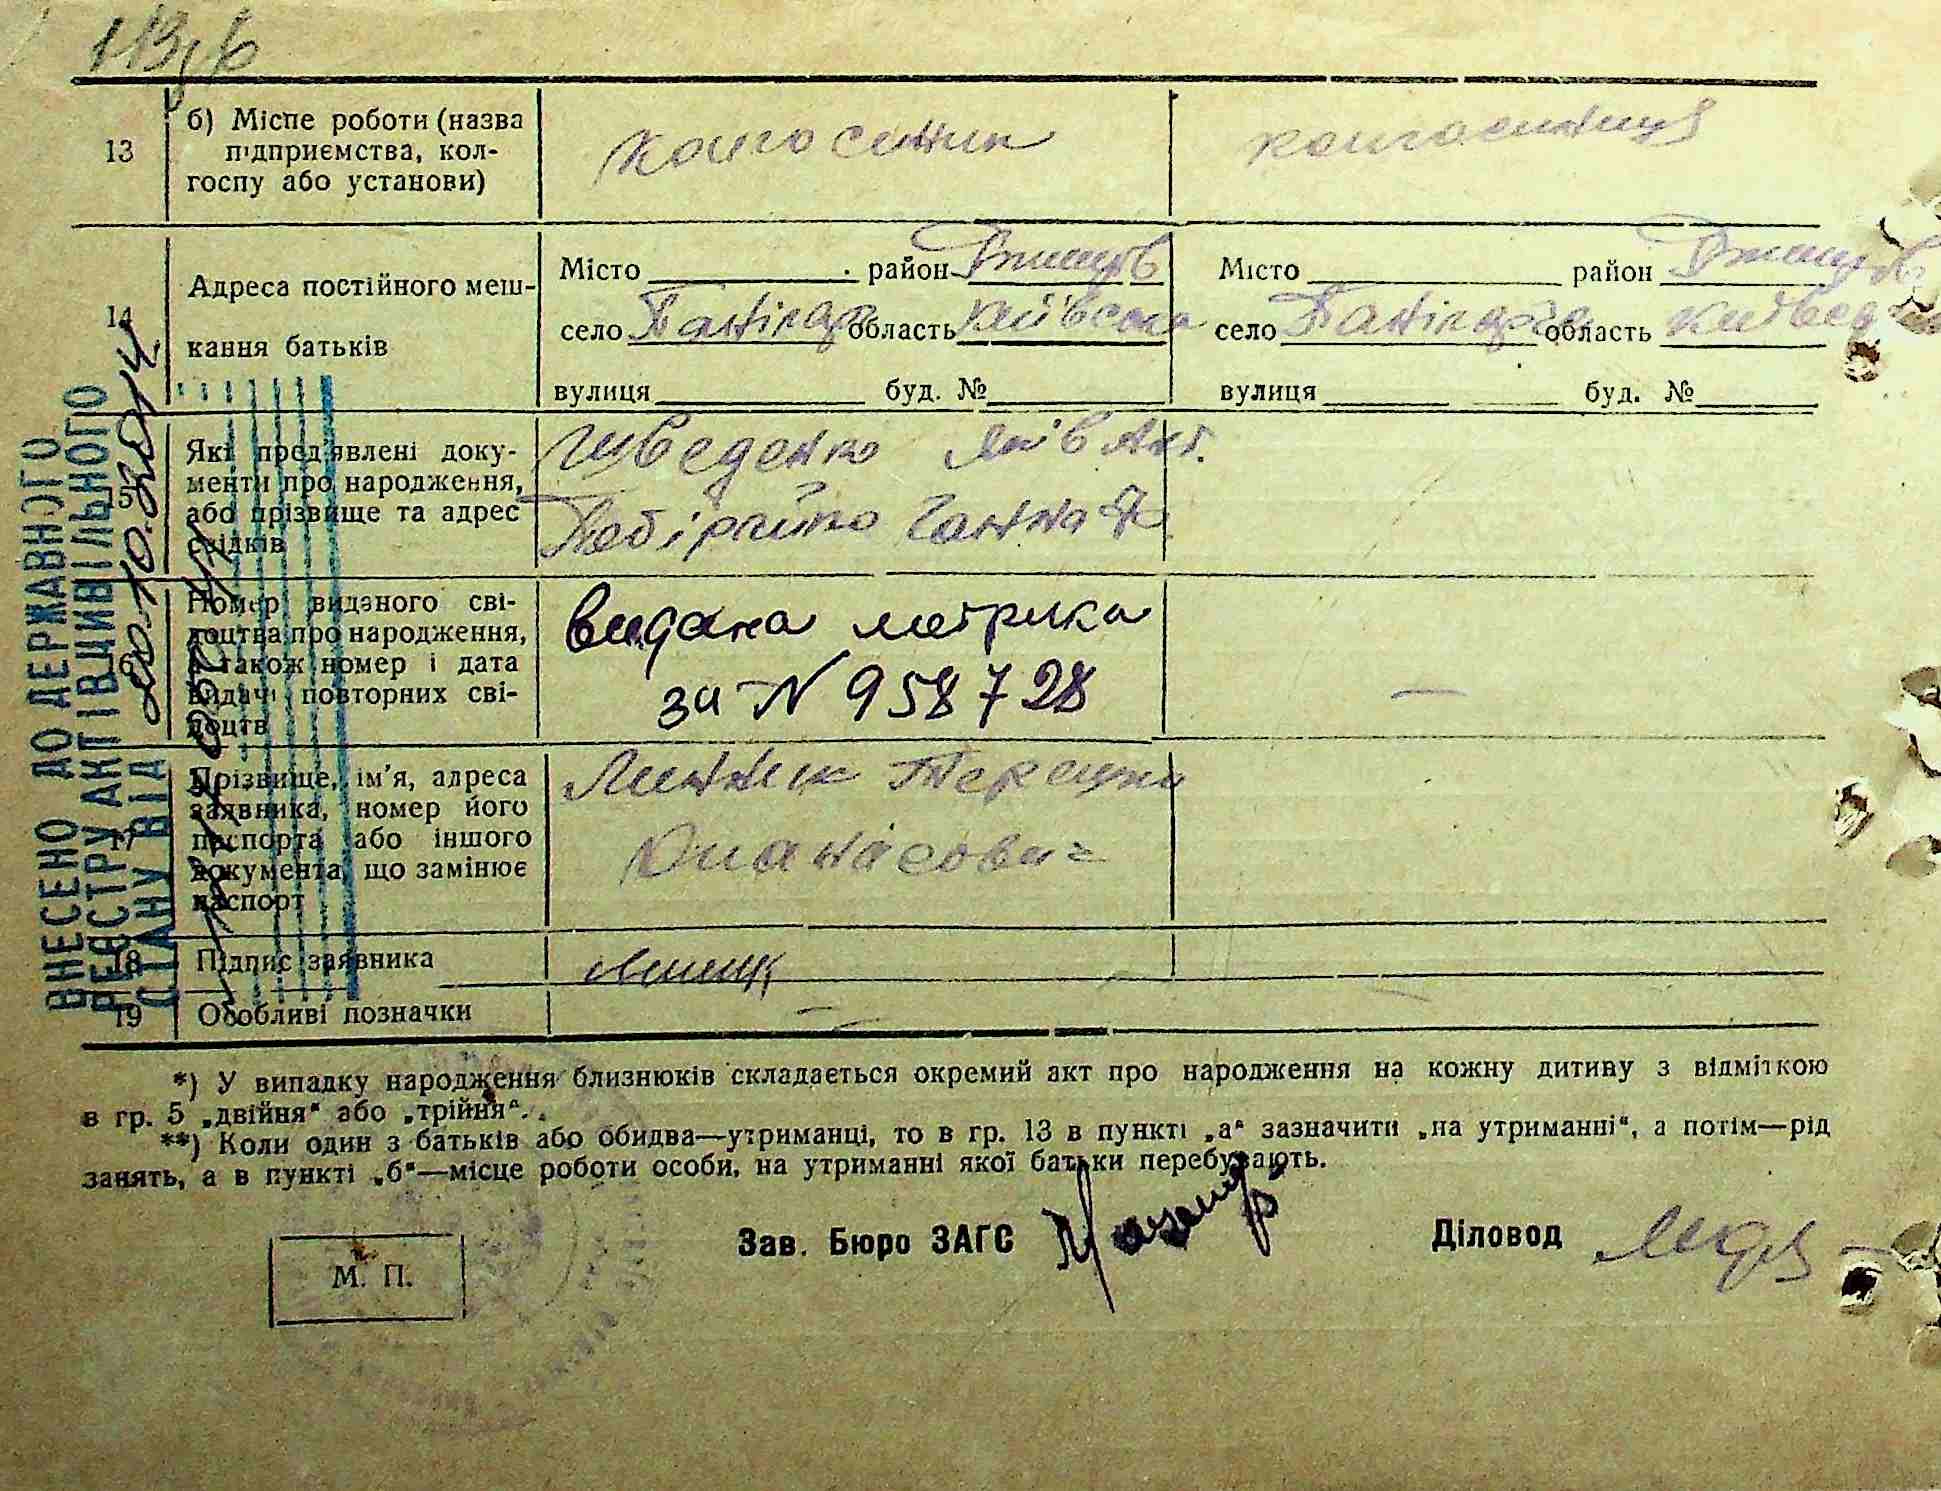 13 б) Місце роботи (назва підприємства, колгоспу або установи) колгоспник колгоспниця
14 Адреса постійного мешкання батьків
Місто район Ржищів Місто район Ржищів
село Панікарча область Київська село Панікарча область Київс
вулиця буд. № вулиця буд. №
15 Які пред'явлені документи про народження, або прізвище та адрес свідків
Шведенко Яків Ант.
Ганна
16 Номер виданого свідоцтва про народження, а також номер і дата видачі повторних свідоцтв
видана метрика
за № 958728 —
17 Прізвище, ім'я, адреса заявника, номер його паспорта або іншого документа, що замінює паспорт
Линник Терешко
Опанасович
18 Підпис заявника
19 Особливі позначки —
ВНЕСЕНО ДО ДЕРЖАВНОГО
РЕЄСТРУ АКТІВ ЦИВІЛЬНОГО
СТАНУ ВІД
*) У випадку народження близнюків складається окремий акт про народження на кожну дитину з відміткою
в гр. 5 „двійня“ або „трійня“.
**) Коли один з батьків або обидва—утриманці, то в гр. 13 в пункті „а“ зазначити „на утриманні“, а потім—рід
занять, а в пункті „б“—місце роботи особи, на утриманні якої батьки перебувають.
Зав. Бюро ЗАГС Діловод
М. П.